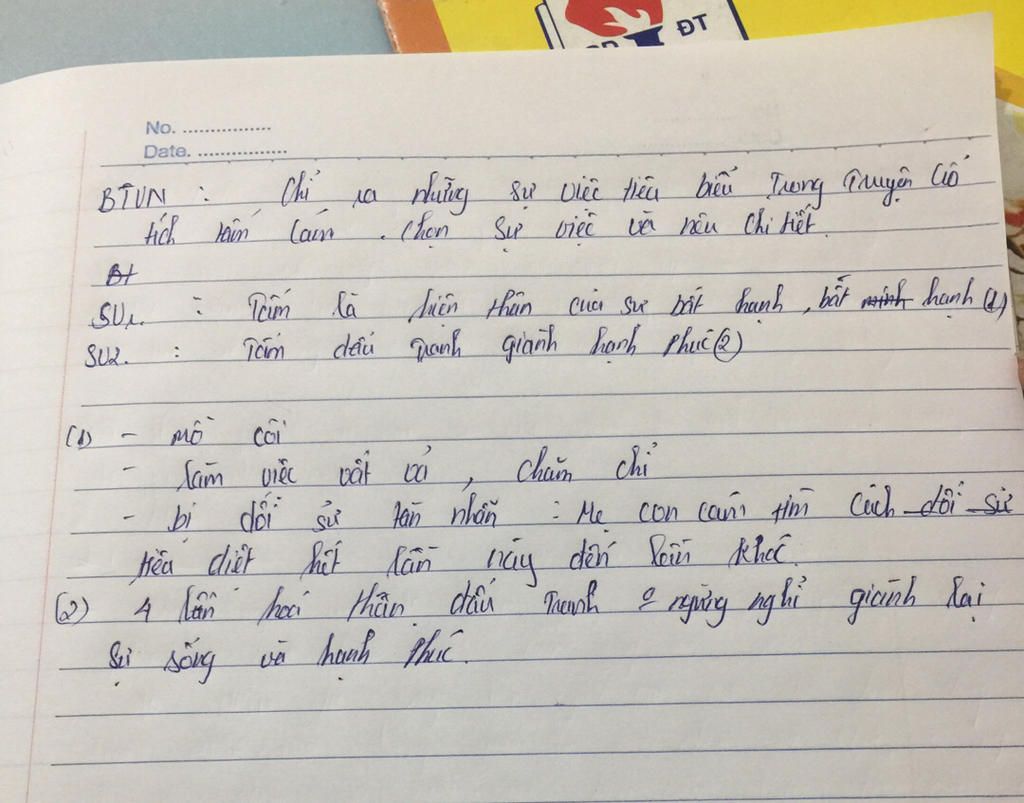 ĐT
No. ................
Date. ................
BTVN : Chỉ ra những sự việc tiêu biểu trong truyện Cổ
tích tấm Cám . Chọn sự việc và nêu chi tiết.
Bt
SV1. : Tấm là hiện thân của sự bất hạnh, bất minh hạnh (1)
SV2. : Tấm đấu tranh giành hạnh phúc (2)
(1) - mồ côi
- làm việc vất vả , chăm chỉ
- bị đối sử tàn nhẫn : Mẹ con cám tìm Cách đối sử
tiêu diệt hết lần này đến lần khác.
(2) 4 lần hoá thân đấu tranh ngừng nghỉ giành lại
sự sống và hạnh phúc.